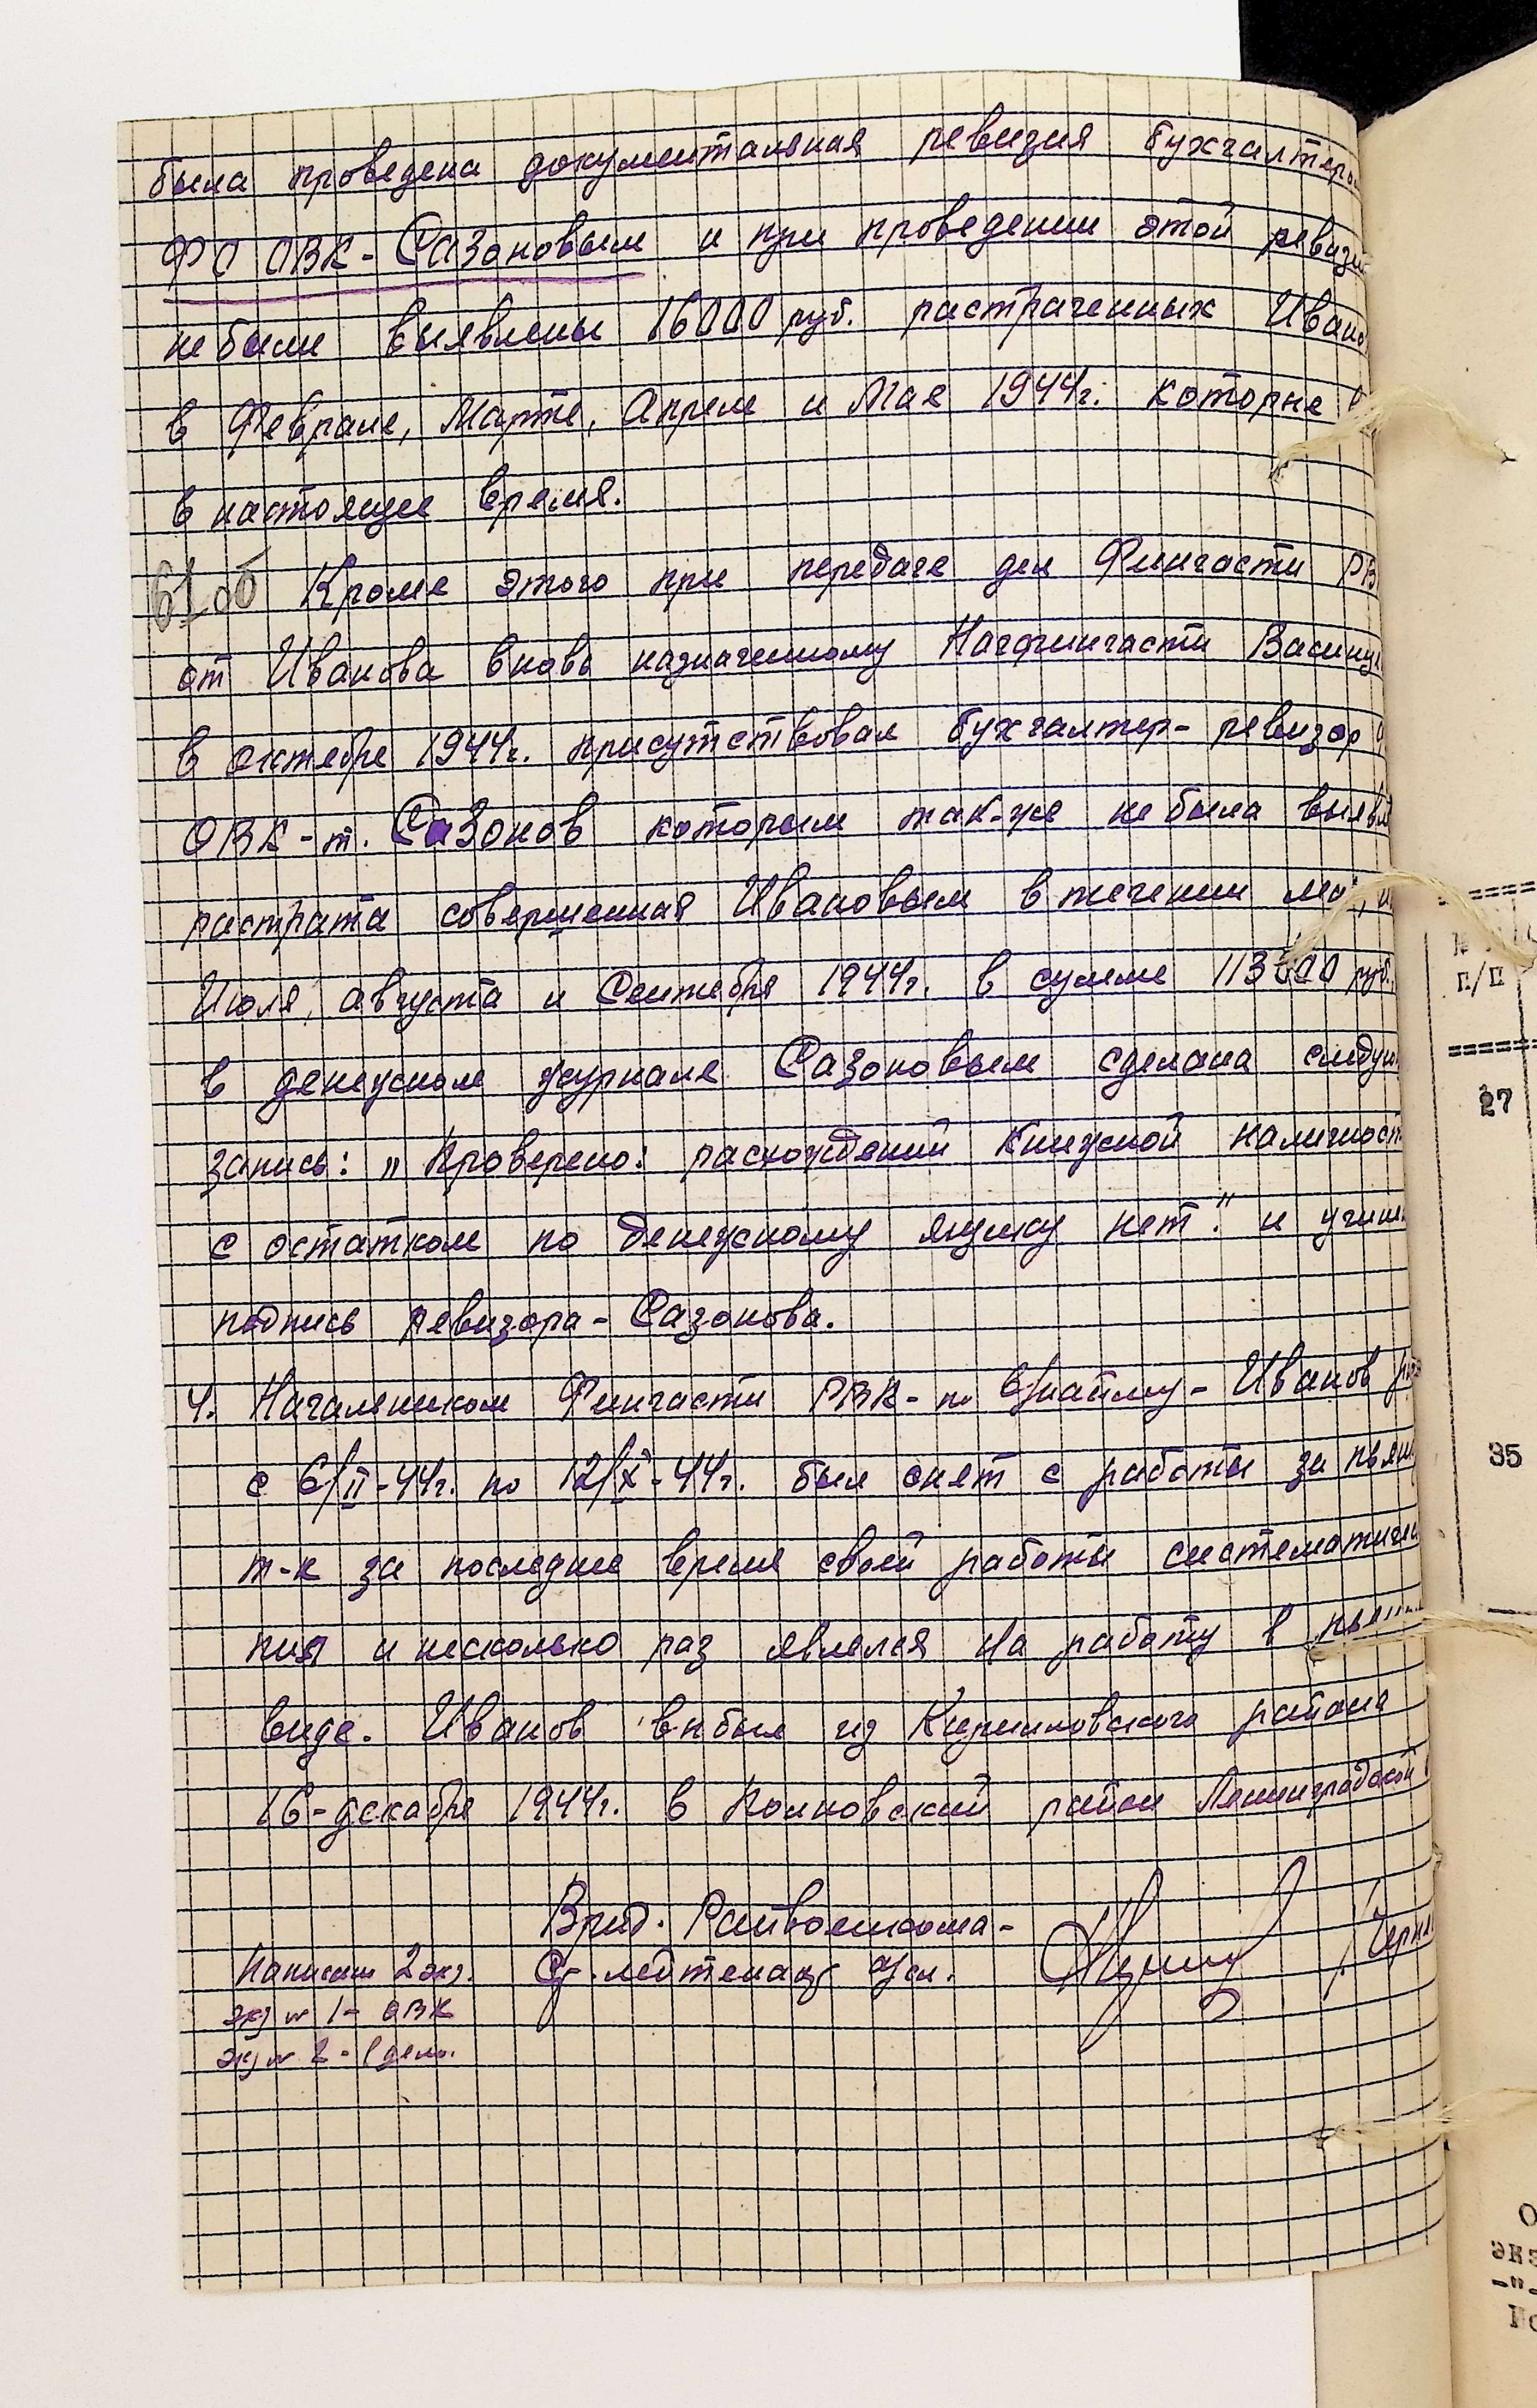 была проведена документальная ревизия бухгалтеро
ФО ОВК - Сазоновым и при проведении этой ревизи
не были выявлены 16000 руб. растраченных Ивано
в Феврале, Марте, Апреле и Мае 1944г. которые
в настоящее время.
61 об
Кроме этого при передаче дел Финчасти РВ
от Иванова вновь назначенному Начфинчасти
в октябре 1944г. присутствовал бухгалтер-ревизор
ОВК-т. Сазонов которым так-же не была выявл
растрата совершенная Ивановым в течении
Июля, августа и Сентября 1944г. в сумме 113000 руб.
в денежном журнале Сазоновым сделана следую
запись: „Проверено: расхождений Книжной наличност
с остатком по денежному ящику нет." и учин
подпись ревизора - Сазонова.
4. Начальником Финчасти РВК - по в/найму - Иванов
с 6/II-44г. по 12/X-44г. был снят с работы за пьян
т-к за последнее время своей работы систематичес
пил и несколько раз являлся на работу в пьян
виде. Иванов выбыл из Кирилловского района
16-декабря 1944г. в Колповский район Ленинградской
Врид. Райвоенкома -
Ст. лейтенант а/сл.
Написан 2 экз.
экз № 1 - ОВК
экз № 2 - в дело.
п/п
27
35